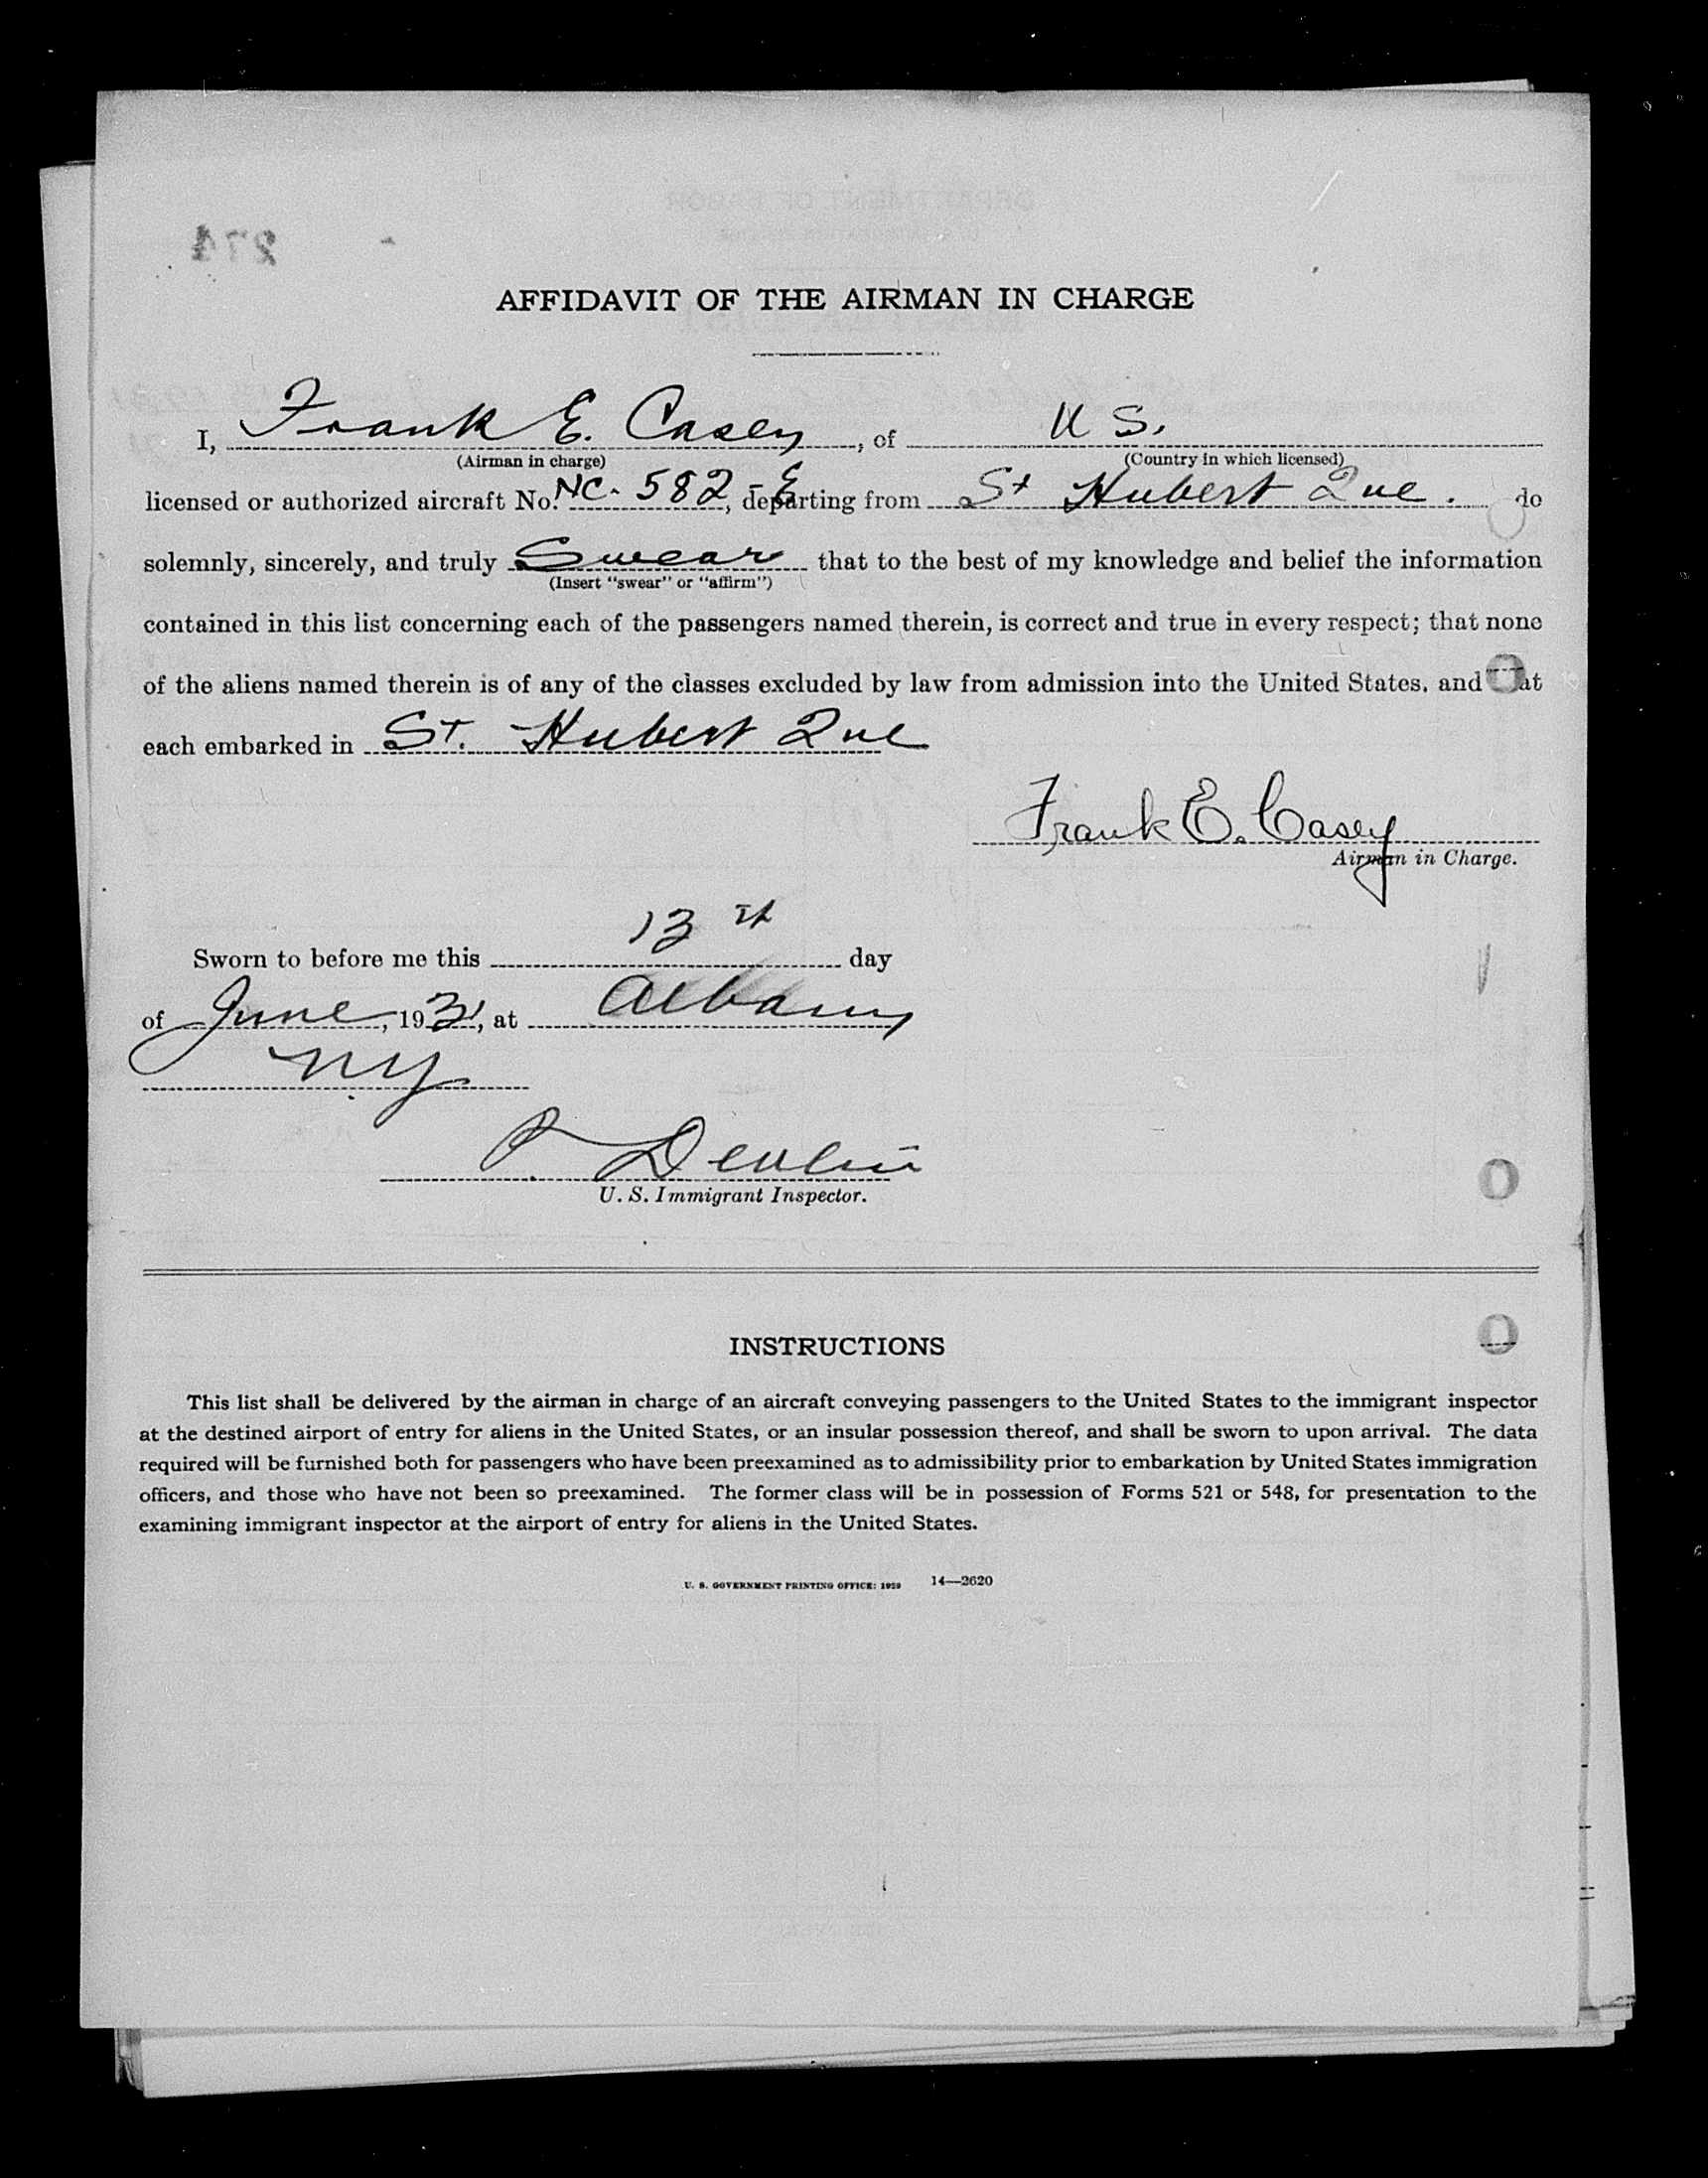 AFFIDAVIT OF THE AIRMAN IN CHARGE
I, Frank E. Casey, of U S.
(Airman in charge) (Country in which licensed)
licensed or authorized aircraft No. NC-582-E, departing from St Hubert Que. do
solemnly, sincerely, and truly Swear that to the best of my knowledge and belief the information
(Insert "swear" or "affirm")
contained in this list concerning each of the passengers named therein, is correct and true in every respect; that none
of the aliens named therein is of any of the classes excluded by law from admission into the United States, and at
each embarked in St. Hubert Que
Frank E. Casey
Airman in Charge.
Sworn to before me this 13th day
of June, 1931, at Albany
NY
P. Devlin
U. S. Immigrant Inspector.
INSTRUCTIONS
This list shall be delivered by the airman in charge of an aircraft conveying passengers to the United States to the immigrant inspector
at the destined airport of entry for aliens in the United States, or an insular possession thereof, and shall be sworn to upon arrival. The data
required will be furnished both for passengers who have been preexamined as to admissibility prior to embarkation by United States immigration
officers, and those who have not been so preexamined. The former class will be in possession of Forms 521 or 548, for presentation to the
examining immigrant inspector at the airport of entry for aliens in the United States.
U. S. GOVERNMENT PRINTING OFFICE: 1929 14—2620